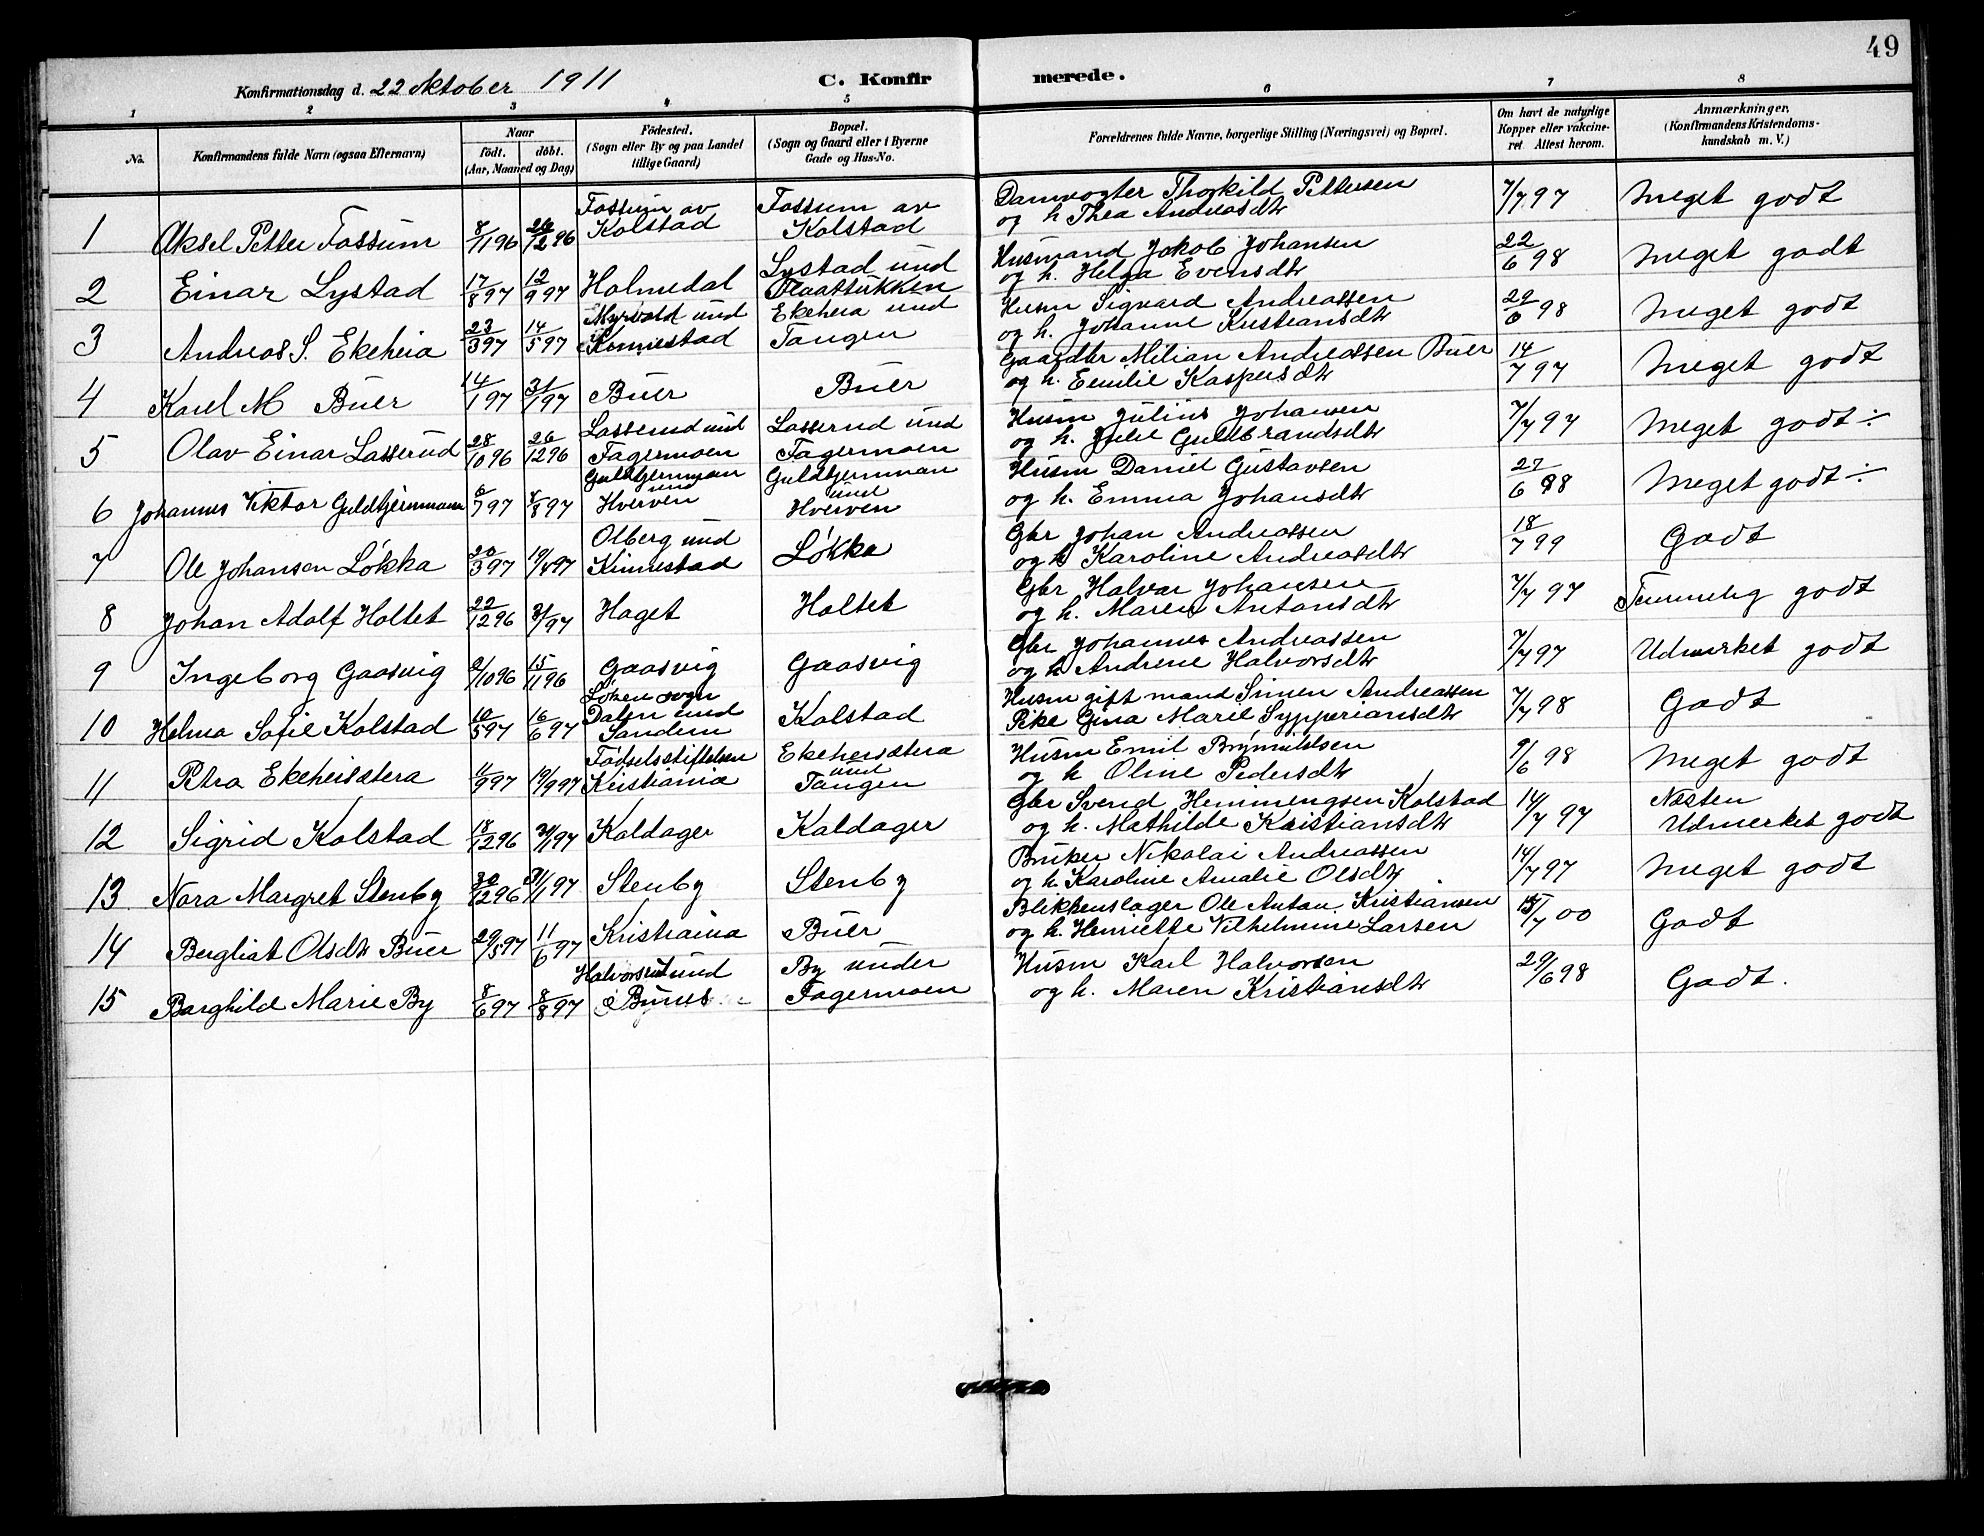 49
Konfirmationsdag d. 22 Oktober 1911 C. Konfirmerede.
1 2 3 4 5 6 7 8
No. Konfirmandens fulde Navn (ogsaa Efternavn) Naar födt. döbt. (Aar, Maaned og Dag) Födested. (Sogn eller By og paa Landet tillige Gaard) Bopæl. (Sogn og Gaard eller i Byerne Gade og Hus-No. Forældrenes fulde Navne, borgerlige Stilling (Næringsvei) og Bopæl. Om havt de naturlige Kopper eller vakcineret. Attest herom. Anmærkninger. (Konfirmandens Kristendomskundskab m. V.)
1 Aksel Petter Fossum 8/11 96 26/12 96 Fossum av Kolstad Fossum av Kolstad Damvogter Thorkild Pettersen og h. Thea Andreasdtr 7/7 97 Meget godt
2 Einar Lystad 17/8 97 12/9 97 Holmedal Lystad und Plaatsukken Husmand Jakob Johansen og h. Helga Evensdtr 22/6 98 Meget godt
3 Andreas S. Ekeheia 23/3 97 14/5 97 Myrvold und Kinnestad Ekeheia und Tangen Husm Sigvard Andreassen og h. Johanne Kristiansdtr 29/6 98 Meget godt
4 Karl M Buer 14/1 97 31/1 97 Buer Buer Gaardbr Milian Andreassen Buer og h. Emilie Kaspersdtr 14/7 97 Meget godt
5 Olav Einar Lasserud 28/10 96 26/12 96 Lasserud und Fagermoen Lasserud und Fagermoen Husm Julius Johansen og h. Julie Guldbrandsdtr 7/7 97 Meget godt ÷
6 Johannes Viktor Guldkjernmoen 6/7 97 8/8 97 Guldkjernmoen und Hverven Guldkjernmoen und Hverven Husm Daniel Gustavsen og h. Emma Johansdtr 27/6 98 Meget godt ÷
7 Ole Johansen Løkka 20/3 97 19/4 97 Olberg und Kinnestad Løkka Gbr Johan Andreassen og h Karoline Andreasdtr 18/7 99 Godt
8 Johan Adolf Holtet 22/12 96 /97 Haget Holtet Gbr Halvor Johansen og h. Maren Antonsdtr 7/7 97 Temmelig godt
9 Ingeborg Gaasvig 9/10 96 15/11 96 Gaasvig Gaasvig Gbr Johannes Andreassen og h Andrene Halvorsdtr 7/7 97 Udmerket godt
10 Helma Sofie Kolstad 10/5 97 16/6 97 Løken sogn Dalen und Sandem Kolstad Husm gift mand Simen Andreassen Pike Gina Marie Sypperiansdtr 7/7 98 Godt
11 Petra Ekeheisetera 11/9 97 19/9 97 Fødselsstiftelsen Kristiania Ekeheisætera und Tangen Husm Emil Brynildsen og h Oline Pedersdtr 9/6 98 Meget godt
12 Sigrid Kolstad 18/12 96 /1 97 Koldager Kaldager Gbr Svend Hemmingsen Kolstad og h. Mathilde Kristiansdtr 14/7 97 Næsten Udmerket godt
13 Nora Margret Stenby 30/12 96 31/1 97 Stenby Stenby Bruker Nikolai Andreassen og h Karoline Amalie Olsdtr 14/7 97 Meget godt
14 Bergliot Olsdtr Buer 29/5 97 11/6 97 Kristiania Buer Blikkenslager Ole Anton Kristiansen og h. Henriette Vilhelmine Larsen 15/7 00 Godt
15 Borghild Marie By 8/6 97 8/8 97 Halvorsrud und By under Fagermoen Husm Karl Halvorsen og h. Maren Kristiansdtr 29/6 98 Godt.